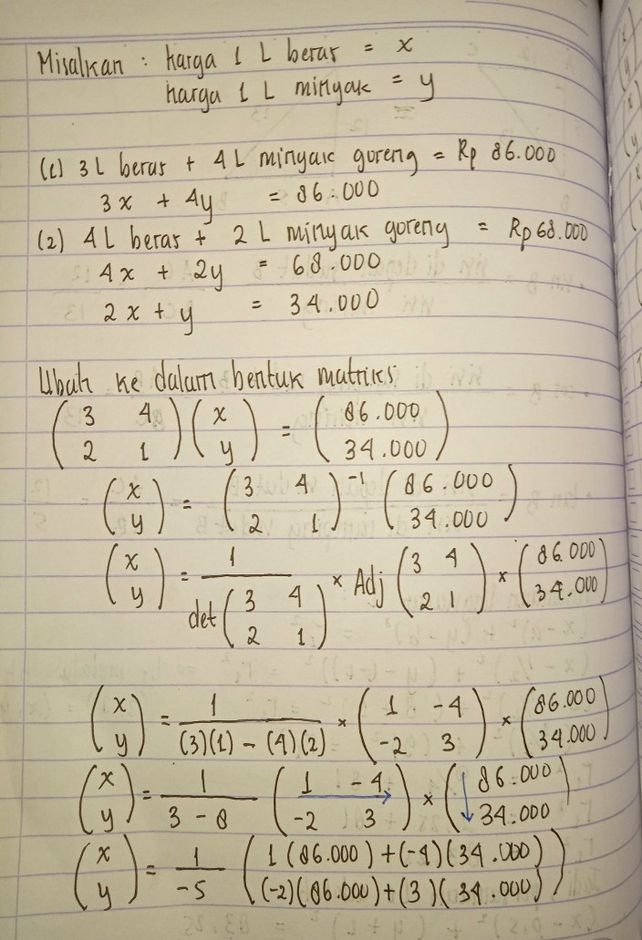 Misalkan : harga 1 L beras = x
harga 1 L minyak = y
(1) 3L beras + 4L minyak goreng = Rp 86.000
3x + 4y = 86.000
(2) 4L beras + 2 L minyak goreng = Rp 68.000
4x + 2y = 68.000
2x + y = 34.000
Ubah ke dalam bentuk matriks
(3 4
2 1) (x
y) = (86.000
34.000)
(x
y) = (3 4
2 1)⁻¹ (86.000
34.000)
(x
y) = 1
det (3 4
2 1) × Adj (3 4
2 1) × (86.000
34.000)
(x
y) = 1
(3)(1) - (4)(2) × (1 -4
-2 3) × (86.000
34.000)
(x
y) = 1
3 - 8 (1 -4
-2 3) × (86.000
34.000)
(x
y) = 1
-5 (1(86.000) + (-4)(34.000)
(-2)(86.000) + (3)(34.000))